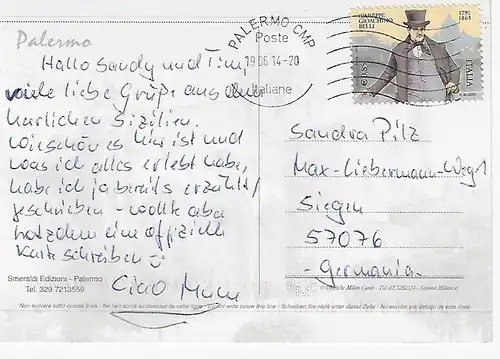 Palermo
Hallo Sandy und Tim,
viele liebe Grüße aus dem
herlichen Sizilien.
Wie schön es hier ist und
was ich alles erlebt habe,
habe ich ja bereits erzählt/
geschrieben - wollte aber
trotzdem eine offizielle
Karte schreiben
Ciao
Smeraldi Edizioni - Palermo
Tel. 329 7213559
PALERMO CMP
Poste
19.06.14-20
Italiane
GIUSEPPE
GIOACHINO
BELLI
1791
1863
ITALIA
Sandra Pilz
Max-Liebermann-Weg 1
Siegen
57076
-Germania-
Non scrivere sotto questa linea - Ne rien écrire au dessous de cette ligne - Do not write below this line - Schreiben Sie nicht unter dieser Zeile - No escribir por debajo de esta linea